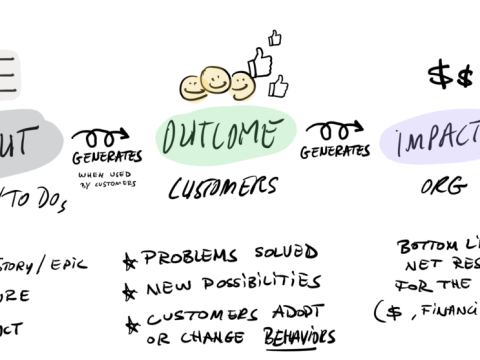 $$
UT
GENERATES
WHEN USED
BY CUSTOMERS
OUTCOME
GENERATES
IMPACT
TO DOs
CUSTOMERS
ORG
STORY/EPIC
URE
UCT
* PROBLEMS SOLVED
* NEW POSSIBILITIES
* CUSTOMERS ADOPT
OR CHANGE BEHAVIORS
BOTTOM LI
NET RES
FOR THE
($, FINANCI